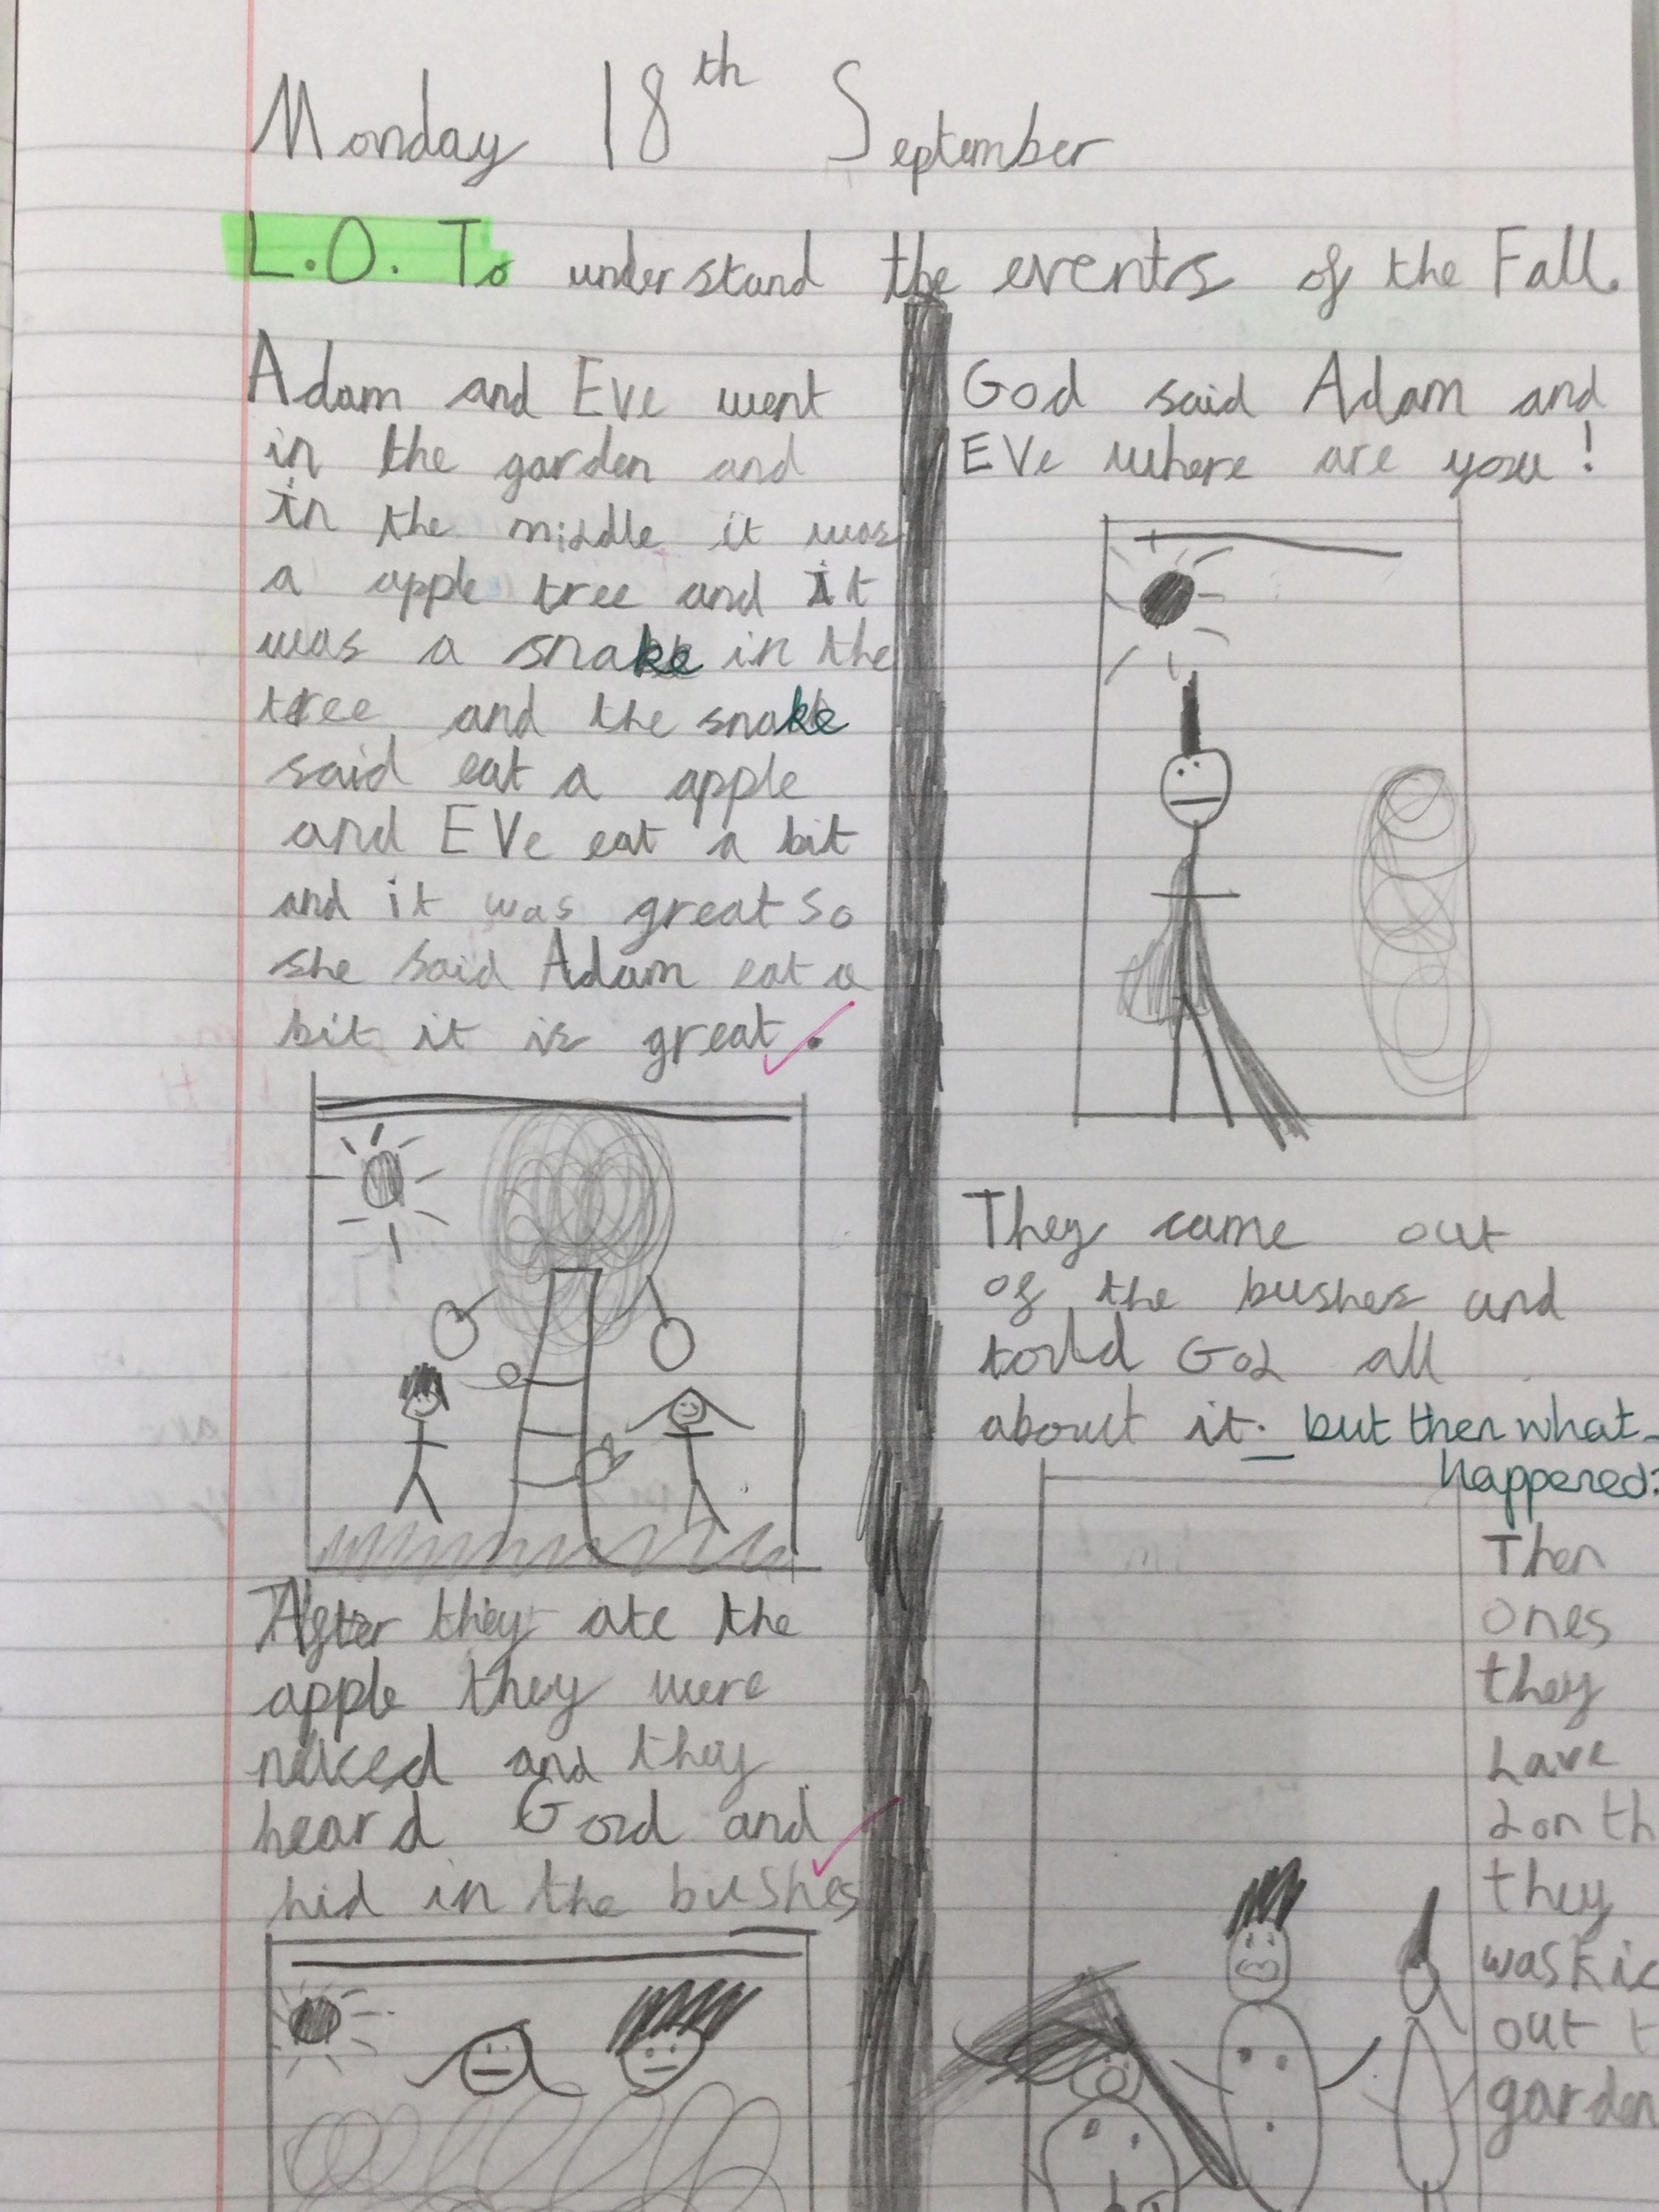 Monday 18th September
L.O. To understand the events of the Fall.
Adam and EVe went
in the garden and
in the middle it was
a apple tree and it
was a snake in the
tree and the snake
said eat a apple
and EVe eat a bit
and it was great so
she said Adam eat a
bit it is great.
After they ate the
apple they were
naked and they
heard God and
hid in the bushes
God said Adam and
EVe where are you!
They came out
of the bushes and
told God all
about it. but then what
happened?
Then
ones
they
have
don th
they
was kic
out t
garden